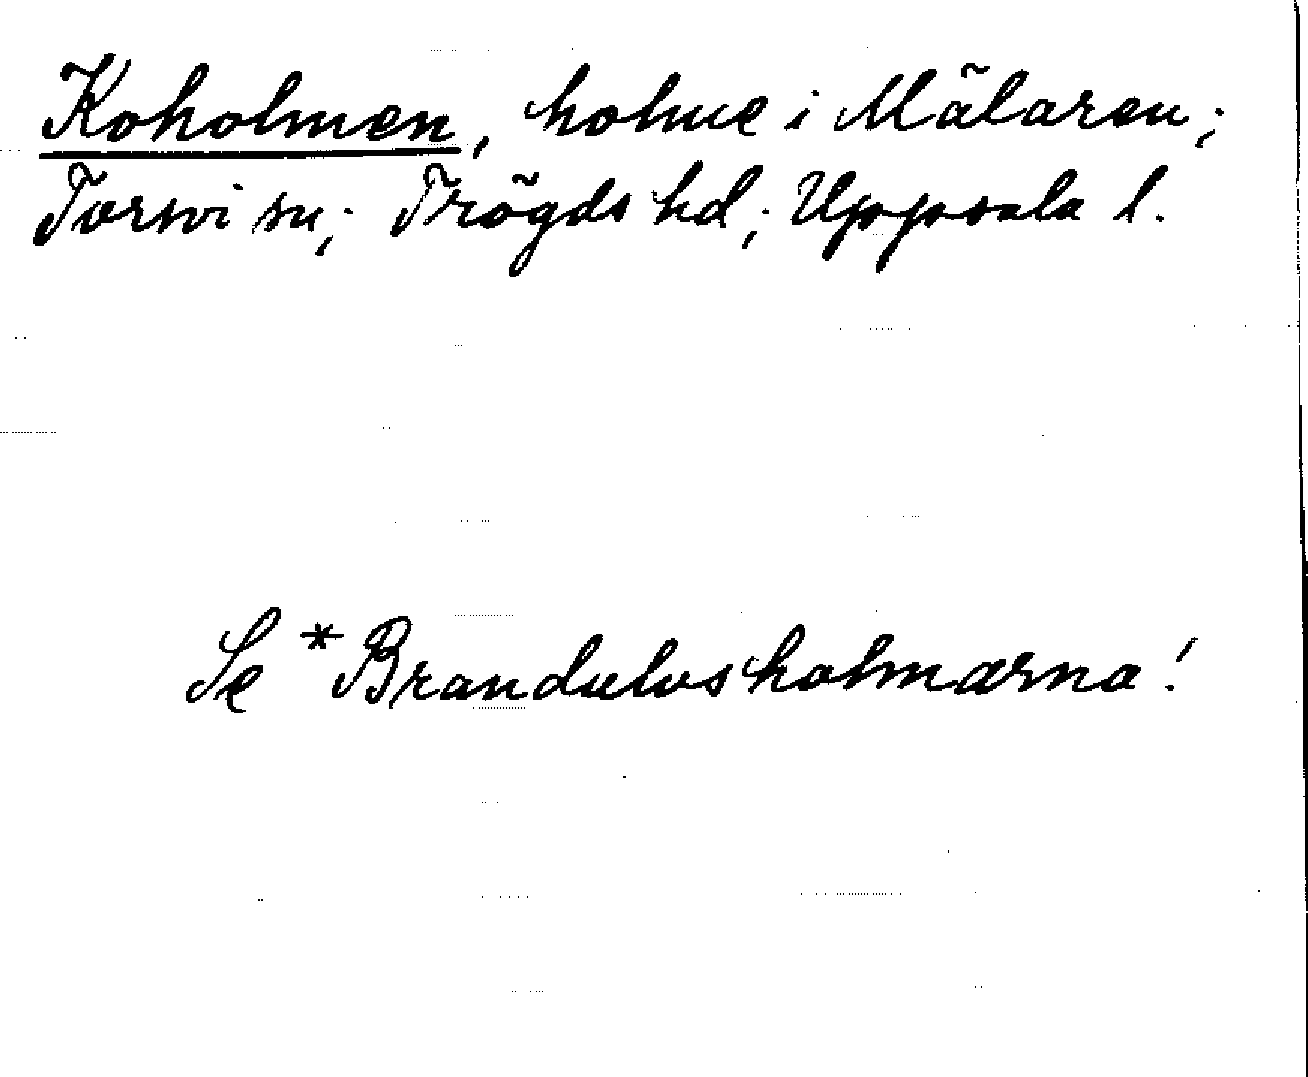 Koholmen, holme i Mälaren;
Torsvi sn; Trögds hd; Uppsala l.
Se *Brandulvsholmarna!